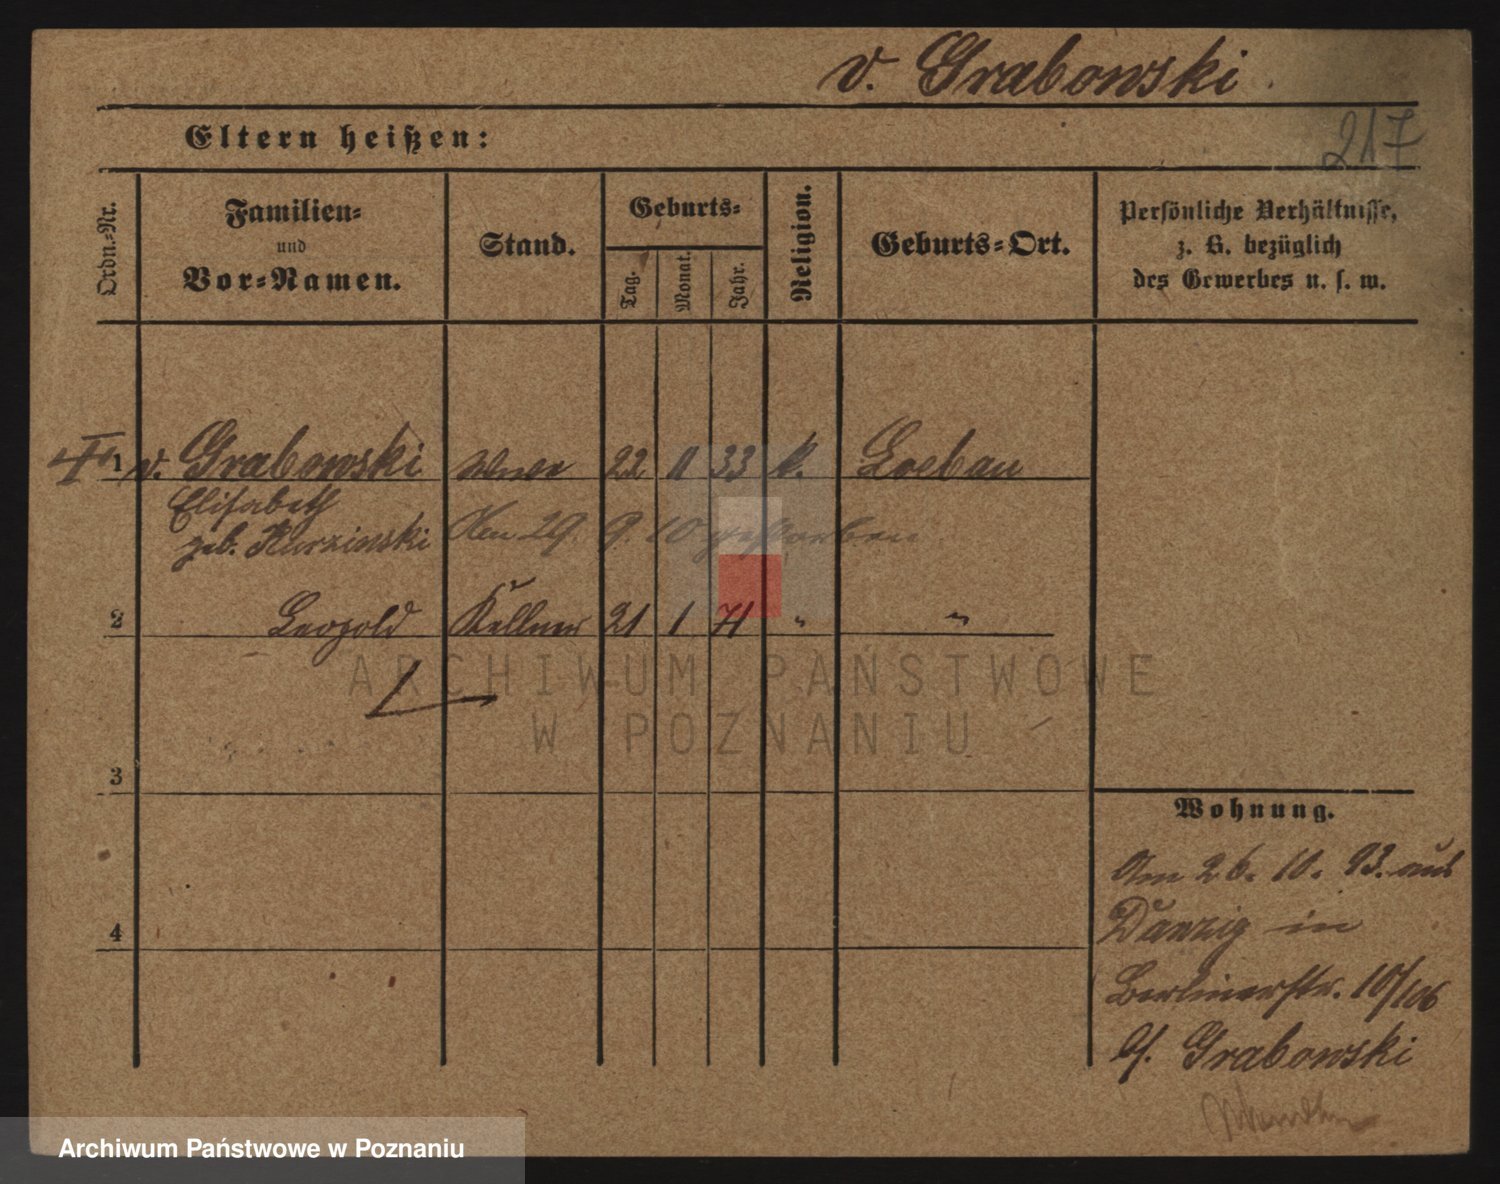 v. Grabowski
217
Eltern heißen:
Ordn.-Nr.
Familien-
und
Vor-Namen.
Stand.
Geburts-
Tag.
Monat.
Jahr.
Religion.
Geburts-Ort.
Persönliche Verhältnisse,
z. B. bezüglich
des Gewerbes u. s. w.
1 v. Grabowski Wwe 22 11 33 k. Loebau
Elisabeth
geb. Kurzinski
Am 29. 9. 10 gestorben
2 Leopold Kellner 21 1 71 " "
ARCHIWUM PAŃSTWOWE
W POZNANIU
3
Wohnung.
Am 26. 10. 93. aus
Danzig in
Berlinerstr. 10/106
b/. Grabowski
4
Archiwum Państwowe w Poznaniu